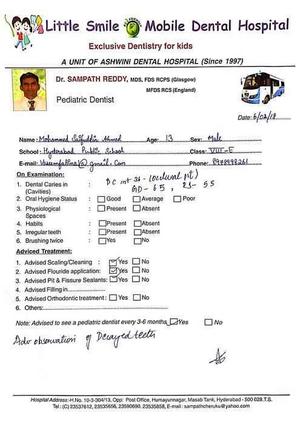 Little Smile Mobile Dental Hospital
Exclusive Dentistry for kids
A UNIT OF ASHWINI DENTAL HOSPITAL (Since 1997)
Dr. SAMPATH REDDY, MDS, FDS RCPS (Glasgow)
MFDS RCS (England)
Pediatric Dentist
Date: 6/02/18
Name: Mohammed Saifuddin Ahmed Age: 13 Sex: Male
School: Hyderabad Public School Class: VIII-E
E-mail: @gmail.com Phone:
On Examination:
1. Dental Caries in (Cavities)
DC
2. Oral Hygiene Status : Good Average Poor
3. Physiological Spaces : Present Absent
4. Habits : Present Absent
5. Irregular teeth : Present Absent
6. Brushing twice : Yes No
Adviced Treatment:
1. Advised Scaling/Cleaning : Yes No
2. Advised Flouride application : Yes No
3. Advised Pit & Fissure Sealants : Yes No
4. Advised Filling in
5. Advised Orthodontic treatment : Yes No
6. Others:
Note: Advised to see a pediatric dentist every 3-6 months Yes No
Adv observation of Decayed teeth
Hospital Address: H.No. 10-3-304/13, Opp: Post Office, Humayunnagar, Masab Tank, Hyderabad - 500 028.T.S.
Tel: (C) 23537612, 23535656, 23590690, 23535858, E-mail: sampathcheruku@yahoo.com